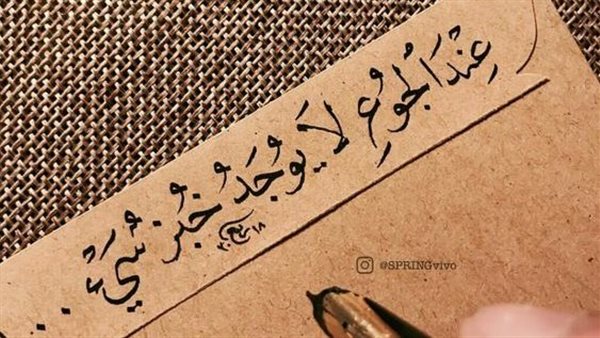 عِنْدَ الْجُوعِ لَا يُوْجَدُ خُبْز سَيِّئ ...
@SPRINGvivo